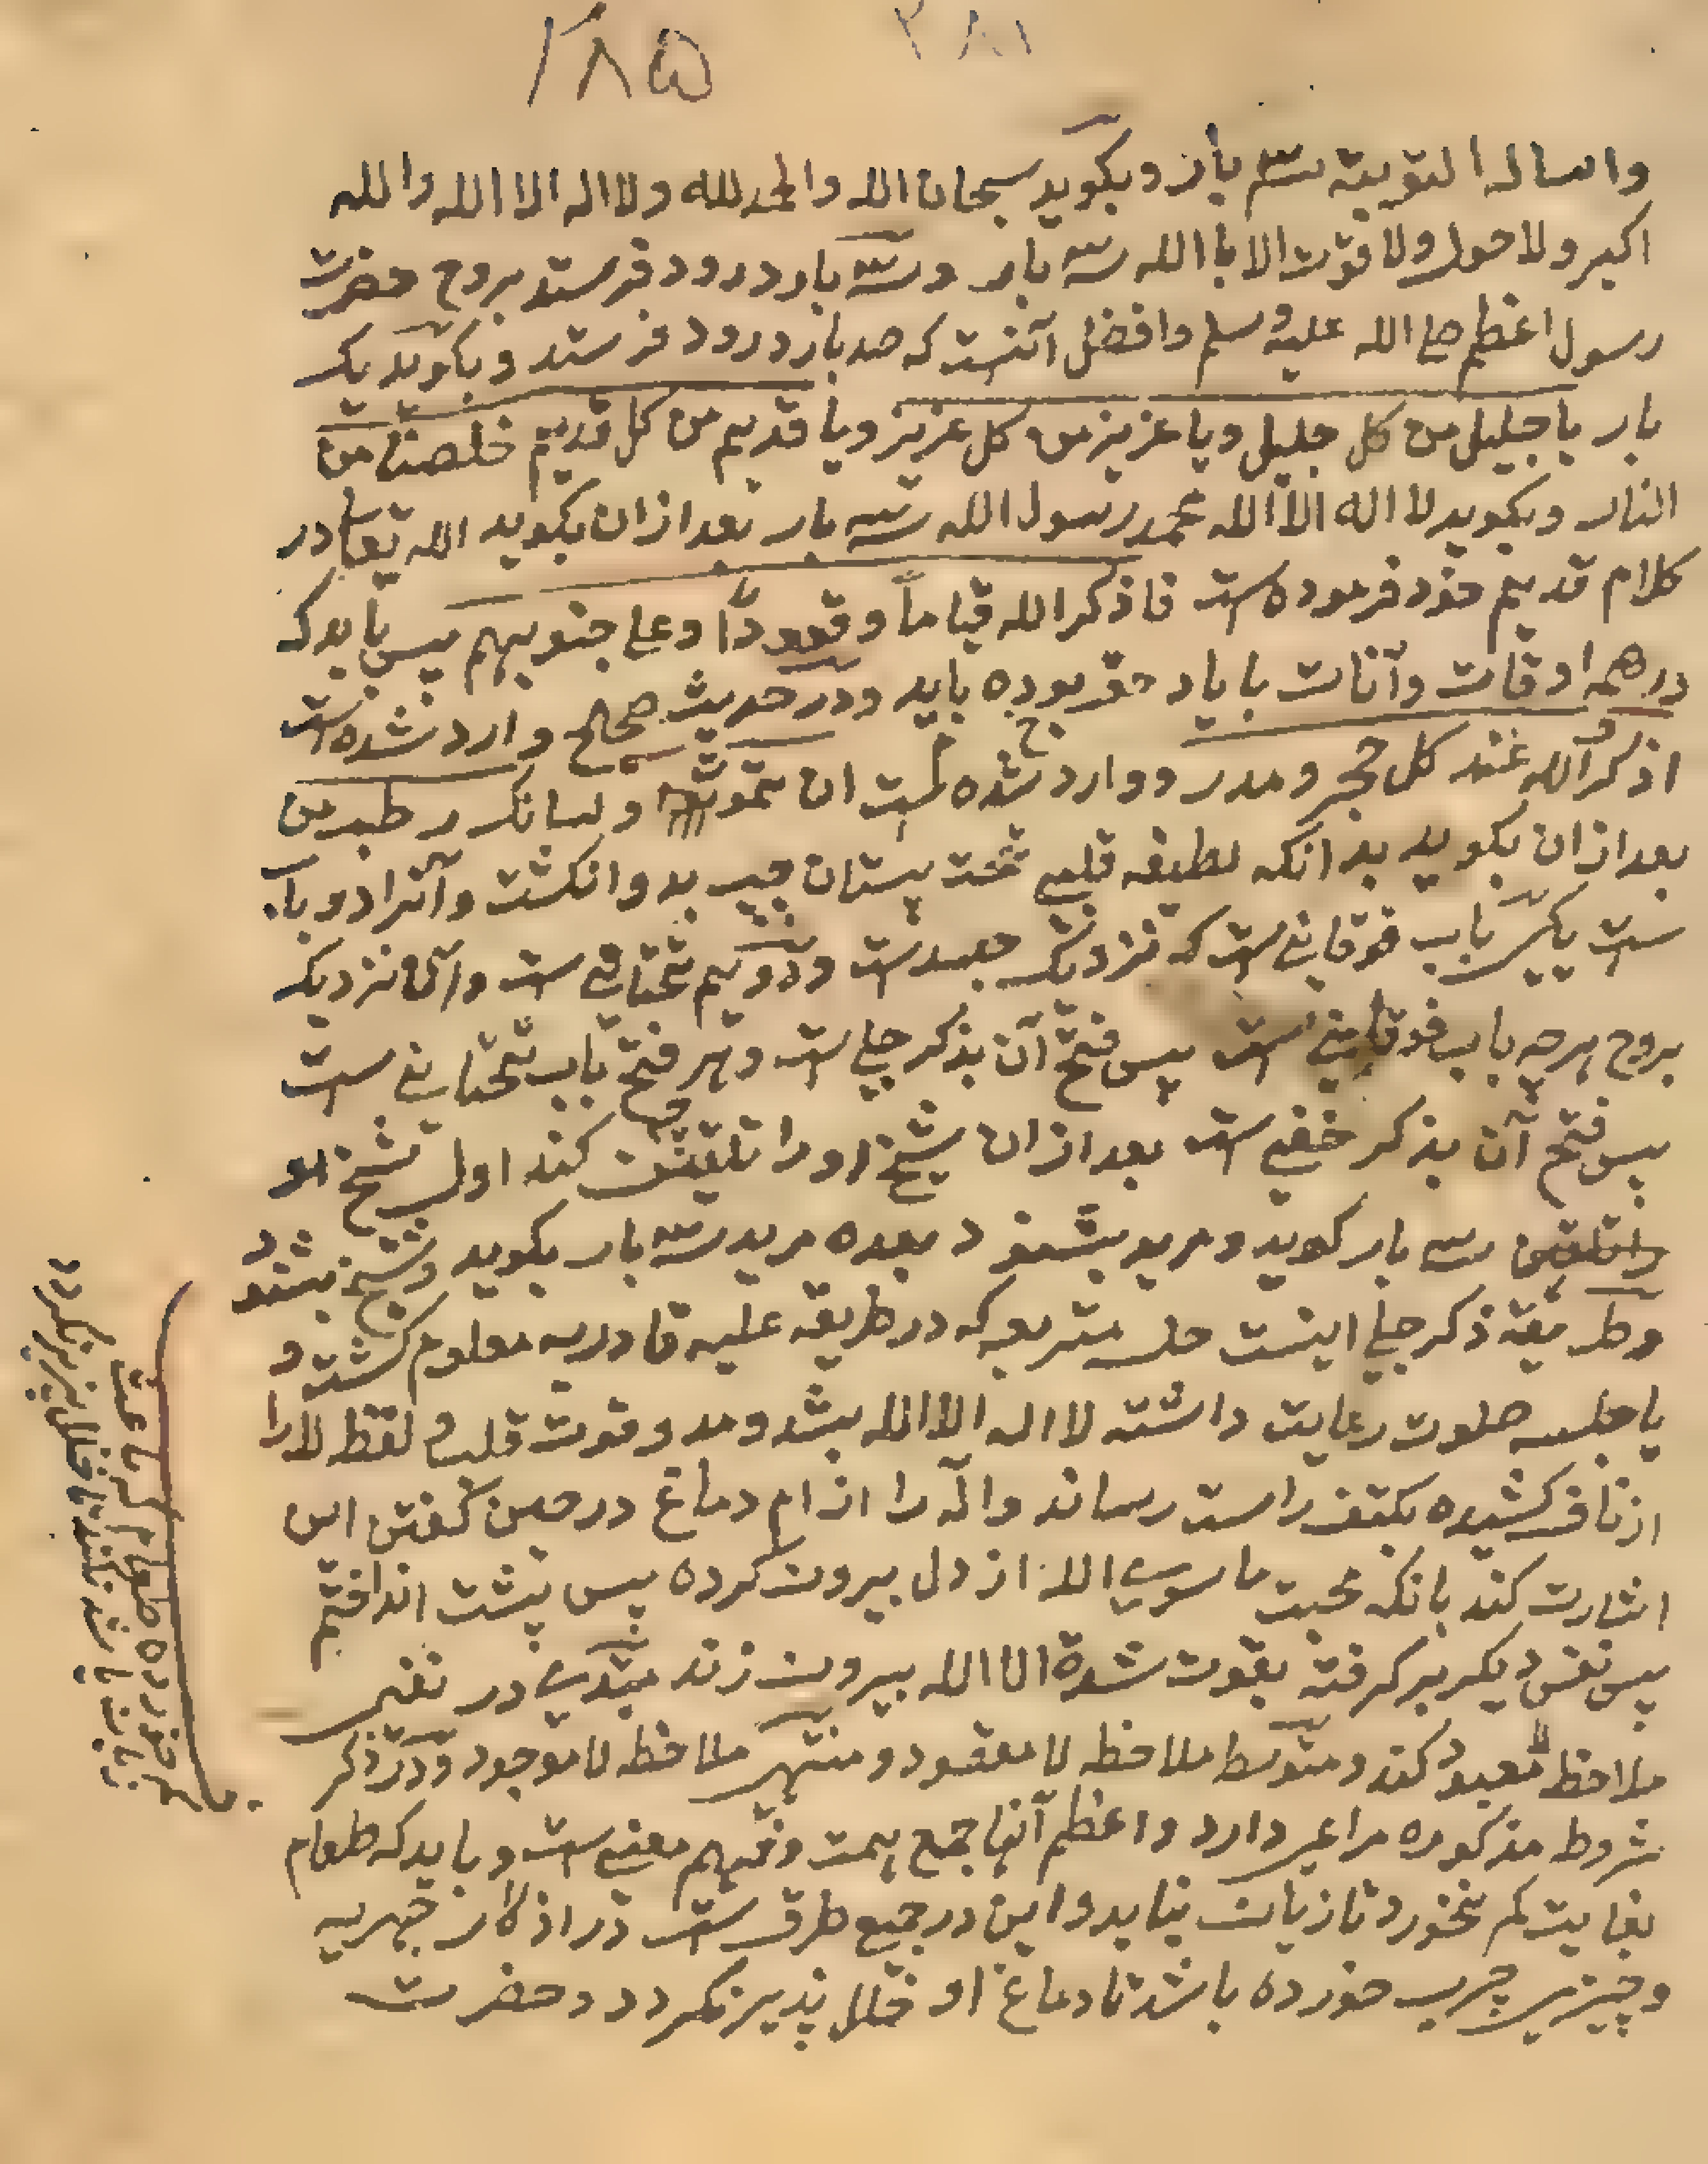 ۲۸۵
۳۸۱
واساله التوبته سه بار و بکوید سبحان الله والحمد لله ولا اله الا الله والله
اکبر ولا حول ولا قوت الا باالله سه بار وسه بار درود فرستد بروح حضرت
رسول اعظم صلی الله علیه وسلم وافضل آنست که صد بار درود فرستد و بکوید یک
بار یا جلیل من کل جلیل ویا عزیز من کل عزیز ویا قدیم من کل قدیم خلصنا من
النار و بکوید لا اله الا الله محمد رسول الله سه بار بعد ازان بکوید الله تعالی در
کلام قدیم خود فرموده است فاذکر الله قیاماً وقعوداً وعلی جنوبهم پس باید که
در همه اوقات وآنات با یاد حق بوده باید ودر حدیث صحاح وارد شده است
اذکر الله عند کل حجر و مدر ووارد شده است ان تموت ولسانک رطب من
بعد ازان بکوید بدانکه لطیفه قلبی تحت پستان چپ بدو انکشت وآنرا دو باب
ست یکی باب فوقانی است که نزدیک جسدست ودویم تحتانی ست وآن نزدیک
بروح هرچه باب فوقانی است پس فتح آن بذکر جلی است وهر فتح باب تحتانی ست
پس فتح آن بذکر خفی ست بعد ازان شیخ او را تلقین کند اول شیخ
سه بار کوید و مرید بشنود بعده مرید سه بار بکوید وشیخ بشنود
وطریقه ذکر جلی اینست متربع که در طریقه علیه قادریه معلوم کشته و
یا جلسه صلوت رعایت داشته لا اله الا الله بشد ومد وقوت قلب لفظ لا را
از ناف کشیده بکتف راست رساند واله را از ام دماغ در حین کفتن این
اشارت کند بانکه محبت ما سوی الله از دل بیرون کرده پس پشت انداختم
پس نفس دیکر بر کرفته بقوت شده الا الله بیرون زند مبتدی در نفی
ملاحظه لا معبود کند و متوسط ملاحظه لا مقصود و منتهی ملاحظه لا موجود ودر ذکر
شروط مذکوره مراعی دارد واعظم آنها جمع همت وفهم معنی ست وباید که طعام
بغایت کم نخورد تا زیان نیاید واین در جمیع طرق ست در اذکار جهریه
وچیزی چرب خورده باشد تا دماغ او خلل پذیر نکردد وحضرت